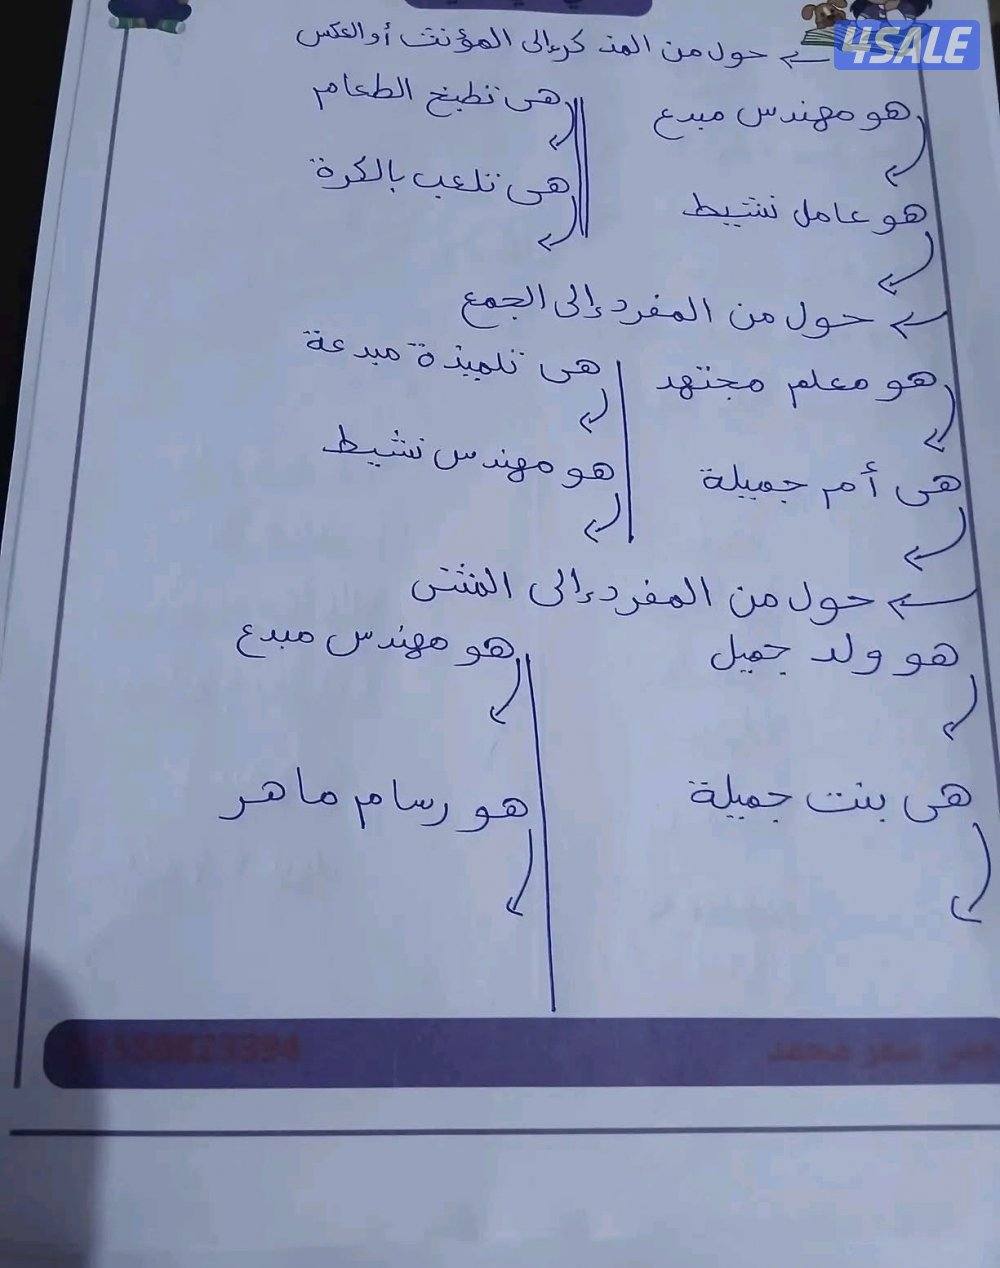 4SALE
← حول من المذكر إلى المؤنث أو العكس
هو مهندس مبدع
هى تطبخ الطعام
هو عامل نشيط
هى تلعب بالكرة
← حول من المفرد إلى الجمع
هو معلم مجتهد
هى تلميذة مبدعة
هى أم جميلة
هو مهندس نشيط
← حول من المفرد إلى المثنى
هو ولد جميل
هو مهندس مبدع
هى بنت جميلة
هو رسام ماهر